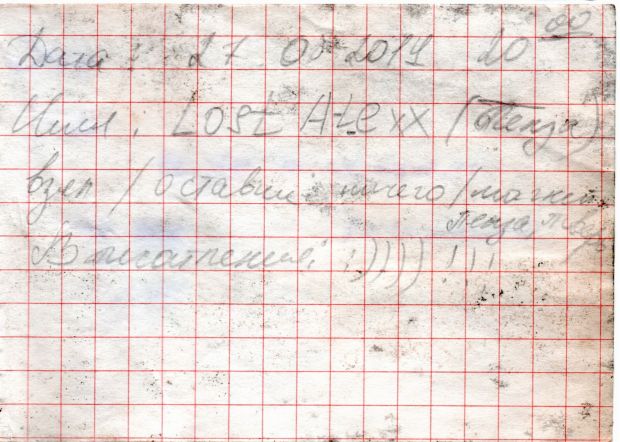 Дата: 27 05 2014 20 00
Имя: LOST ALexx (Пенза)
взял / оставил: ничего / магнит
Пенза,
Впечатления: :)))) !!!